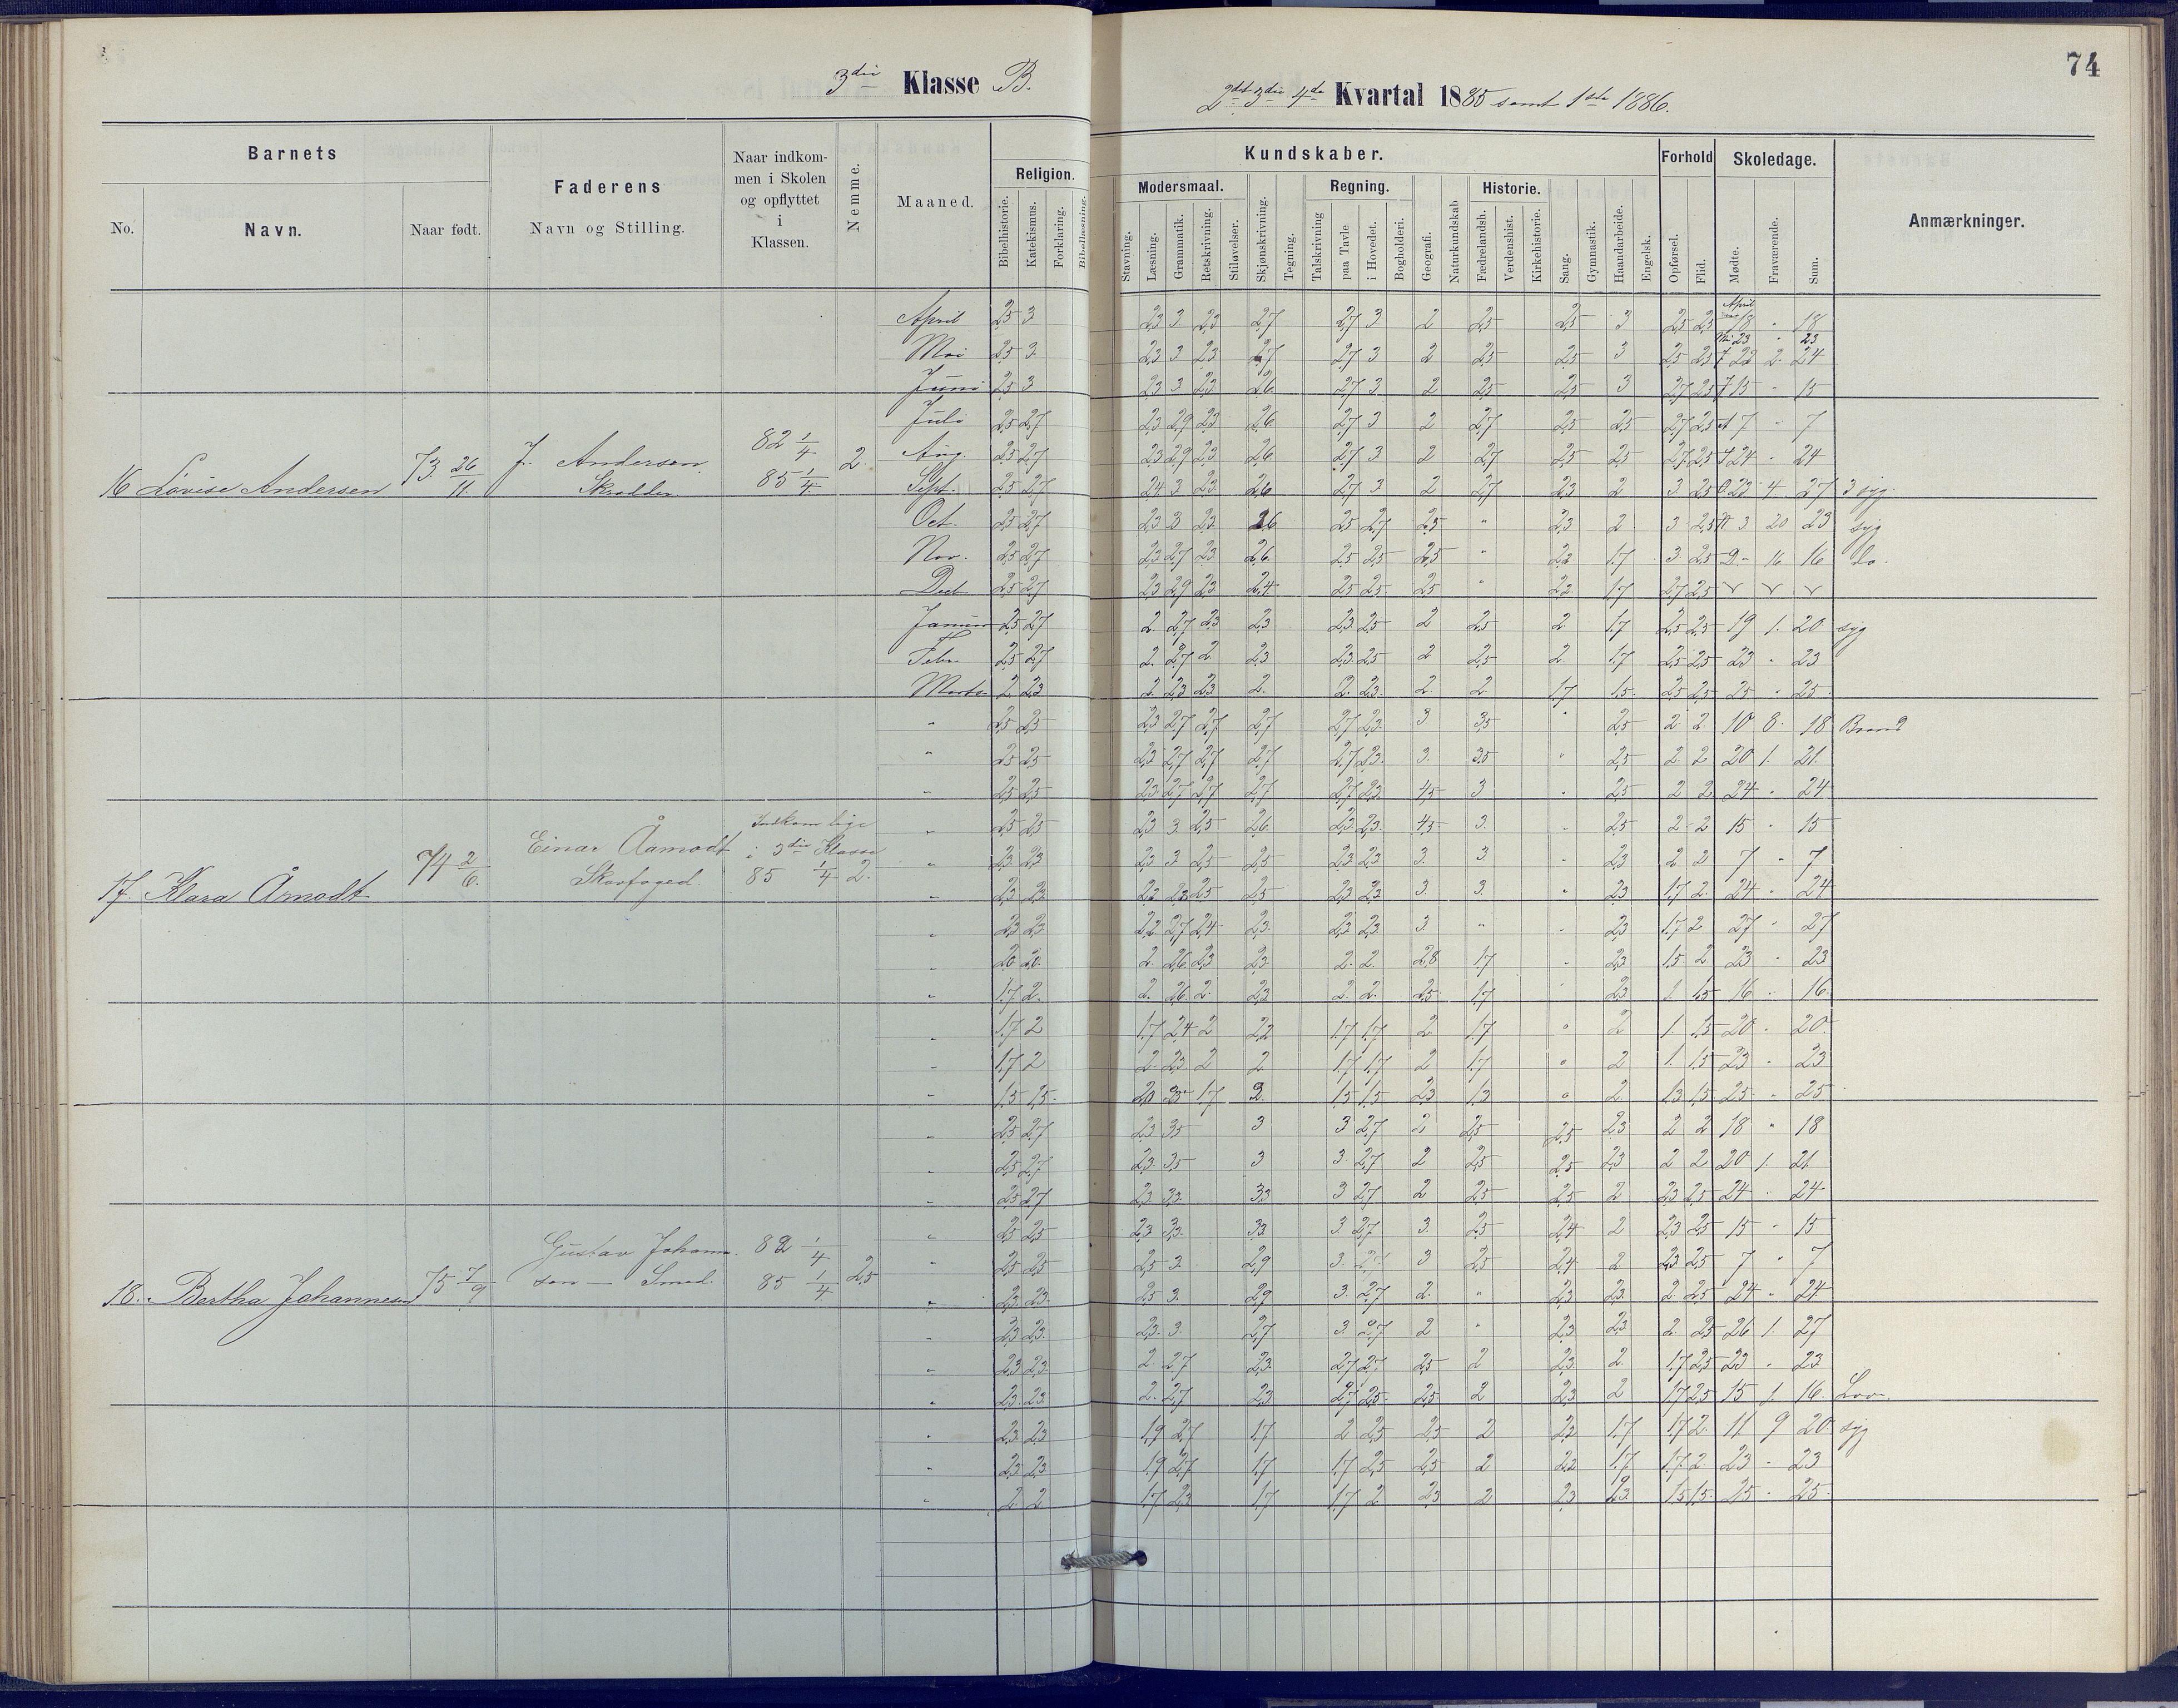 74
3die Klasse B.
2det 3die 4de Kvartal 1885 samt 1ste 1886.
Barnets
No.
Navn.
Naar født.
Faderens
Navn og Stilling.
Naar indkom-
men i Skolen
og opflyttet
i
Klassen.
Nemme.
Maaned.
Kundskaber.
Religion.
Bibelhistorie.
Katekismus.
Forklaring.
Bibellæsning.
Modersmaal.
Stavning.
Læsning.
Grammatik.
Retskrivning.
Stiløvelser.
Skjønskrivning.
Tegning.
Regning.
Talskrivning
paa Tavle
i Hovedet.
Bogholderi.
Geografi.
Naturkundskab
Historie.
Fædrelandsh.
Verdenshist.
Kirkehistorie.
Sang.
Gymnastik.
Haandarbeide.
Engelsk.
Forhold
Opførsel.
Flid.
Skoledage.
Mødte.
Fraværende.
Sum.
Anmærkninger.
16 Lovise Andersen 73 26/11 J. Andersen Skrædder 82 1/4 85 1/4 2.
April 2,5 3 2,3 3 2,3 2,7 2,7 3 2 2,5 2,5 3 2,5 2,5 April 18 " 18
Mai 2,5 3 2,3 3 2,3 2,7 2,7 3 2 2,5 2,5 3 2,5 2,5 23 " 23
22 2 24
Juni 2,5 3 2,3 3 2,3 2,6 2,7 3 2 2,5 2,5 3 2,7 2,5 15 " 15
Juli 2,5 2,7 2,3 2,9 2,3 2,6 2,7 3 2 2,7 2,5 2,5 2,7 2,5 7 " 7
Aug. 2,5 2,7 2,3 2,9 2,3 2,6 2,7 3 2 2,7 2,5 2,5 2,7 2,5 24 " 24
Sept. 2,5 2,7 2,4 3 2,3 2,6 2,7 3 2 2,7 2,3 2 3 2,5 23 4 27 3 syg.
Oct. 2,5 2,7 2,3 3 2,3 2,6 2,5 2,7 2,5 " 2,3 2 3 2,5 3 20 23 syg
Nov. 2,5 2,7 2,3 2,7 2,3 2,6 2,5 2,5 2,5 " 2,2 1,7 3 2,5 16 16 do.
Decb 2,5 2,7 2,3 2,9 2,3 2,4 2,5 2,5 2,5 " 2,2 1,7 2,7 2,5
Januar 2,5 2,7 2 2,7 2,3 2,3 2,3 2,5 2 2,5 2 1,7 2,5 2,5 19 1 20 syg
Febr. 2,5 2,7 2 2,7 2 2,3 2,3 2,5 2 2,5 2 1,7 2,5 2,5 23 " 23
Marts 2 2,3 2 2,3 2,3 2 2 2,3 2 2 1,7 1,5 2,5 2,5 25 " 25
17. Klara Åmodt 74 2/6. Einar Åamodt Skovfoged. Indkom lige i 3die Klasse 85 1/4 2.
" 2,5 2,5 2,3 2,7 2,7 2,7 2,7 2,3 3 3,5 " 2,5 2 2 10 8 18 Brand
" 2,5 2,5 2,3 2,7 2,7 2,7 2,7 2,3 3 3,5 " 2,5 2 2 20 1 21
" 2,5 2,5 2,3 2,7 2,7 2,7 2,7 2,3 4,5 3 " 2,5 2 2 24 " 24
" 2,5 2,5 2,3 3 2,5 2,6 2,3 2,3 4,5 3 " 2,5 2 2 15 " 15
" 2,3 2,3 2,3 3 2,5 2,5 2,3 2,3 3 3 " 2,3 2 2 7 " 7
" 2,3 2,3 2,2 2,8 2,5 2,5 2,3 2,3 3 3 " 2,3 1,7 2 24 " 24
" 2,3 2,3 2,2 2,7 2,4 2,3 2,3 2,3 3 " " 2,3 1,7 2 27 " 27
" 2,0 2,0 2 2,6 2,3 2,3 2 2 2,8 1,7 " 2,3 1,5 2 23 " 23
" 1,7 2 2 2,6 2 2,3 2 2 2,5 1,7 " 2,3 1 1,5 16 " 16
" 1,7 2 1,7 2,4 2 2,2 1,7 1,7 2 1,7 " 2 1 1,5 20 " 20
" 1,7 2 2 2,3 2 2 1,7 1,7 2 1,7 " 2 1 1,5 23 " 23
" 1,5 1,5 2,0 1,7 2 1,5 1,5 2,3 1,3 " 2 1,3 1,5 25 " 25
18. Bertha Johannesen 75 7/9 Gustav Johann- sen — Smed. 82 1/4 85 1/4 2,5
" 2,5 2,7 2,3 3,5 3 3 2,7 2 2,5 2,5 2,3 2 2 18 " 18
" 2,5 2,7 2,3 3,5 3 3 2,7 2 2,5 2,5 2,3 2 2 20 1 21
" 2,5 2,7 2,3 3,3 3,3 3 2,7 2 2,5 2,5 2 2,3 2,5 24 " 24
" 2,5 2,5 2,3 3,3 3,3 3 2,7 3 2,5 2,4 2 2,3 2,5 15 " 15
" 2,5 2,5 2,5 3 2,9 3 2,7 3 2,5 2,4 2 2,3 2,5 7 " 7
" 2,3 2,3 2,5 3 2,9 3 2,7 2 " 2,3 2,3 2 2,5 24 " 24
" 2,3 2,3 2,3 3 2,7 3 2,7 2 " 2,3 2,3 2 2,5 26 1 27
" 2,3 2,3 2 2,7 2,3 2,7 2,7 2,5 2 2,3 2 1,7 2,5 23 " 23
" 2,3 2,3 2 2,7 2,3 2,7 2,5 2,5 2 2,3 2 1,7 2,5 15 1 16 Lov.
" 2,3 2,3 1,9 2,7 1,7 2 2,5 2,5 2 2,2 1,7 1,7 2 11 9 20 syg
" 2,3 2,3 1,9 2,7 1,7 1,7 2,5 2,5 2 2,2 1,7 1,7 2 23 " 23
" 2 2 1,7 2,3 1,7 1,7 2 2,3 2 2,3 1,5 1,5 25 " 25